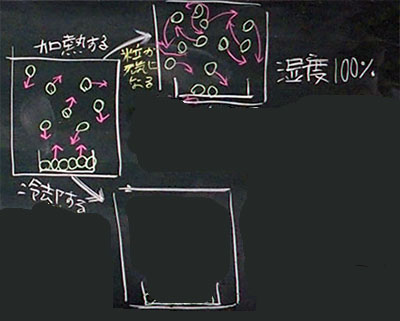 加熱する
粒が
元気に
なる
湿度100%
冷却する